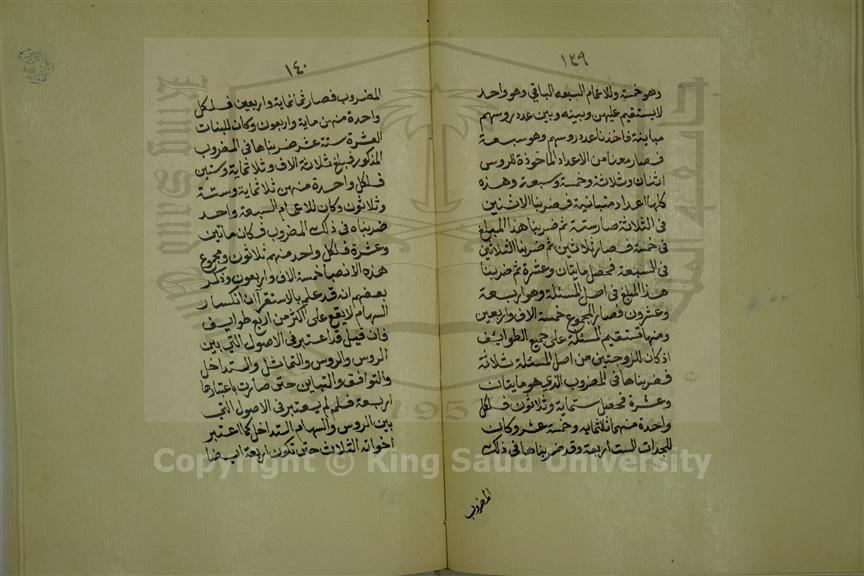 ١٣٩
وهو خمسة وللاعمام السبعه الباقي وهو واحد
لا يستقيم عليهن وبينه وبين عدد روسهم
مباينة فاخذنا عدد روسهم وهو سبعة
فصار معنا من الاعداد الماخوذة للروس
اثنان وثلاثة وخمسة وسبعة وهذه
كلها اعداد متباينة فضربنا الاثنين
في الثلاثة صار ستة ثم ضربنا هذا المبلغ
في خمسة فصار ثلاثين ثم ضربنا الثلاثين
في السبعة فحصل مايتان وعشرة ثم ضربنا
هذا المبلغ في اصل المسئلة وهو اربعة
وعشرون فصار المجموع خمسة الاف واربعين
ومنها تستقيم المسئلة على جميع الطوائف
اذ كان للزوجتين من اصل المسئلة ثلاثة
فضربناها في المضروب الذي هو مايتان
وعشرة فحصل ستماية وثلاثون فلكل
واحدة منهما ثلثماية وخمسة عشر وكان
للجدات الست اربعة وقد ضربناها في ذلك
المضروب
١٤٠
المضروب فصار ثمانماية واربعين فلكل
واحدة منهن ماية واربعون وكان للبنات
العشرة ستة عشر ضربناها في المضروب
المذكور فبلغ ثلاثة الاف وثلاثماية وستين
فلكل واحدة منهن ثلاثماية وستة
وثلاثون وكان للاعمام السبعة واحد
ضربناه في ذلك المضروب فكان ماتين
وعشرة فلكل واحد منهم ثلاثون ومجموع
هذه الانصبا خمسة الاف واربعون وذكر
بعضهم انه قد علم بالاستقرآ ان انكسار
السهام لا يقع على اكثر من اربع طوايف
فان قيل قد اعتبر في الاصول التي بين
الروس والروس والتماثل والتداخل
والتوافق والتباين حتى صارت باعتبارها
اربعة فلم لم يعتبر في الاصول التي
بين الروس والسهام التداخل كما اعتبر
اخواته الثلاث حتى تكون اربعة ايضا
Copyright © King Saud University
1957